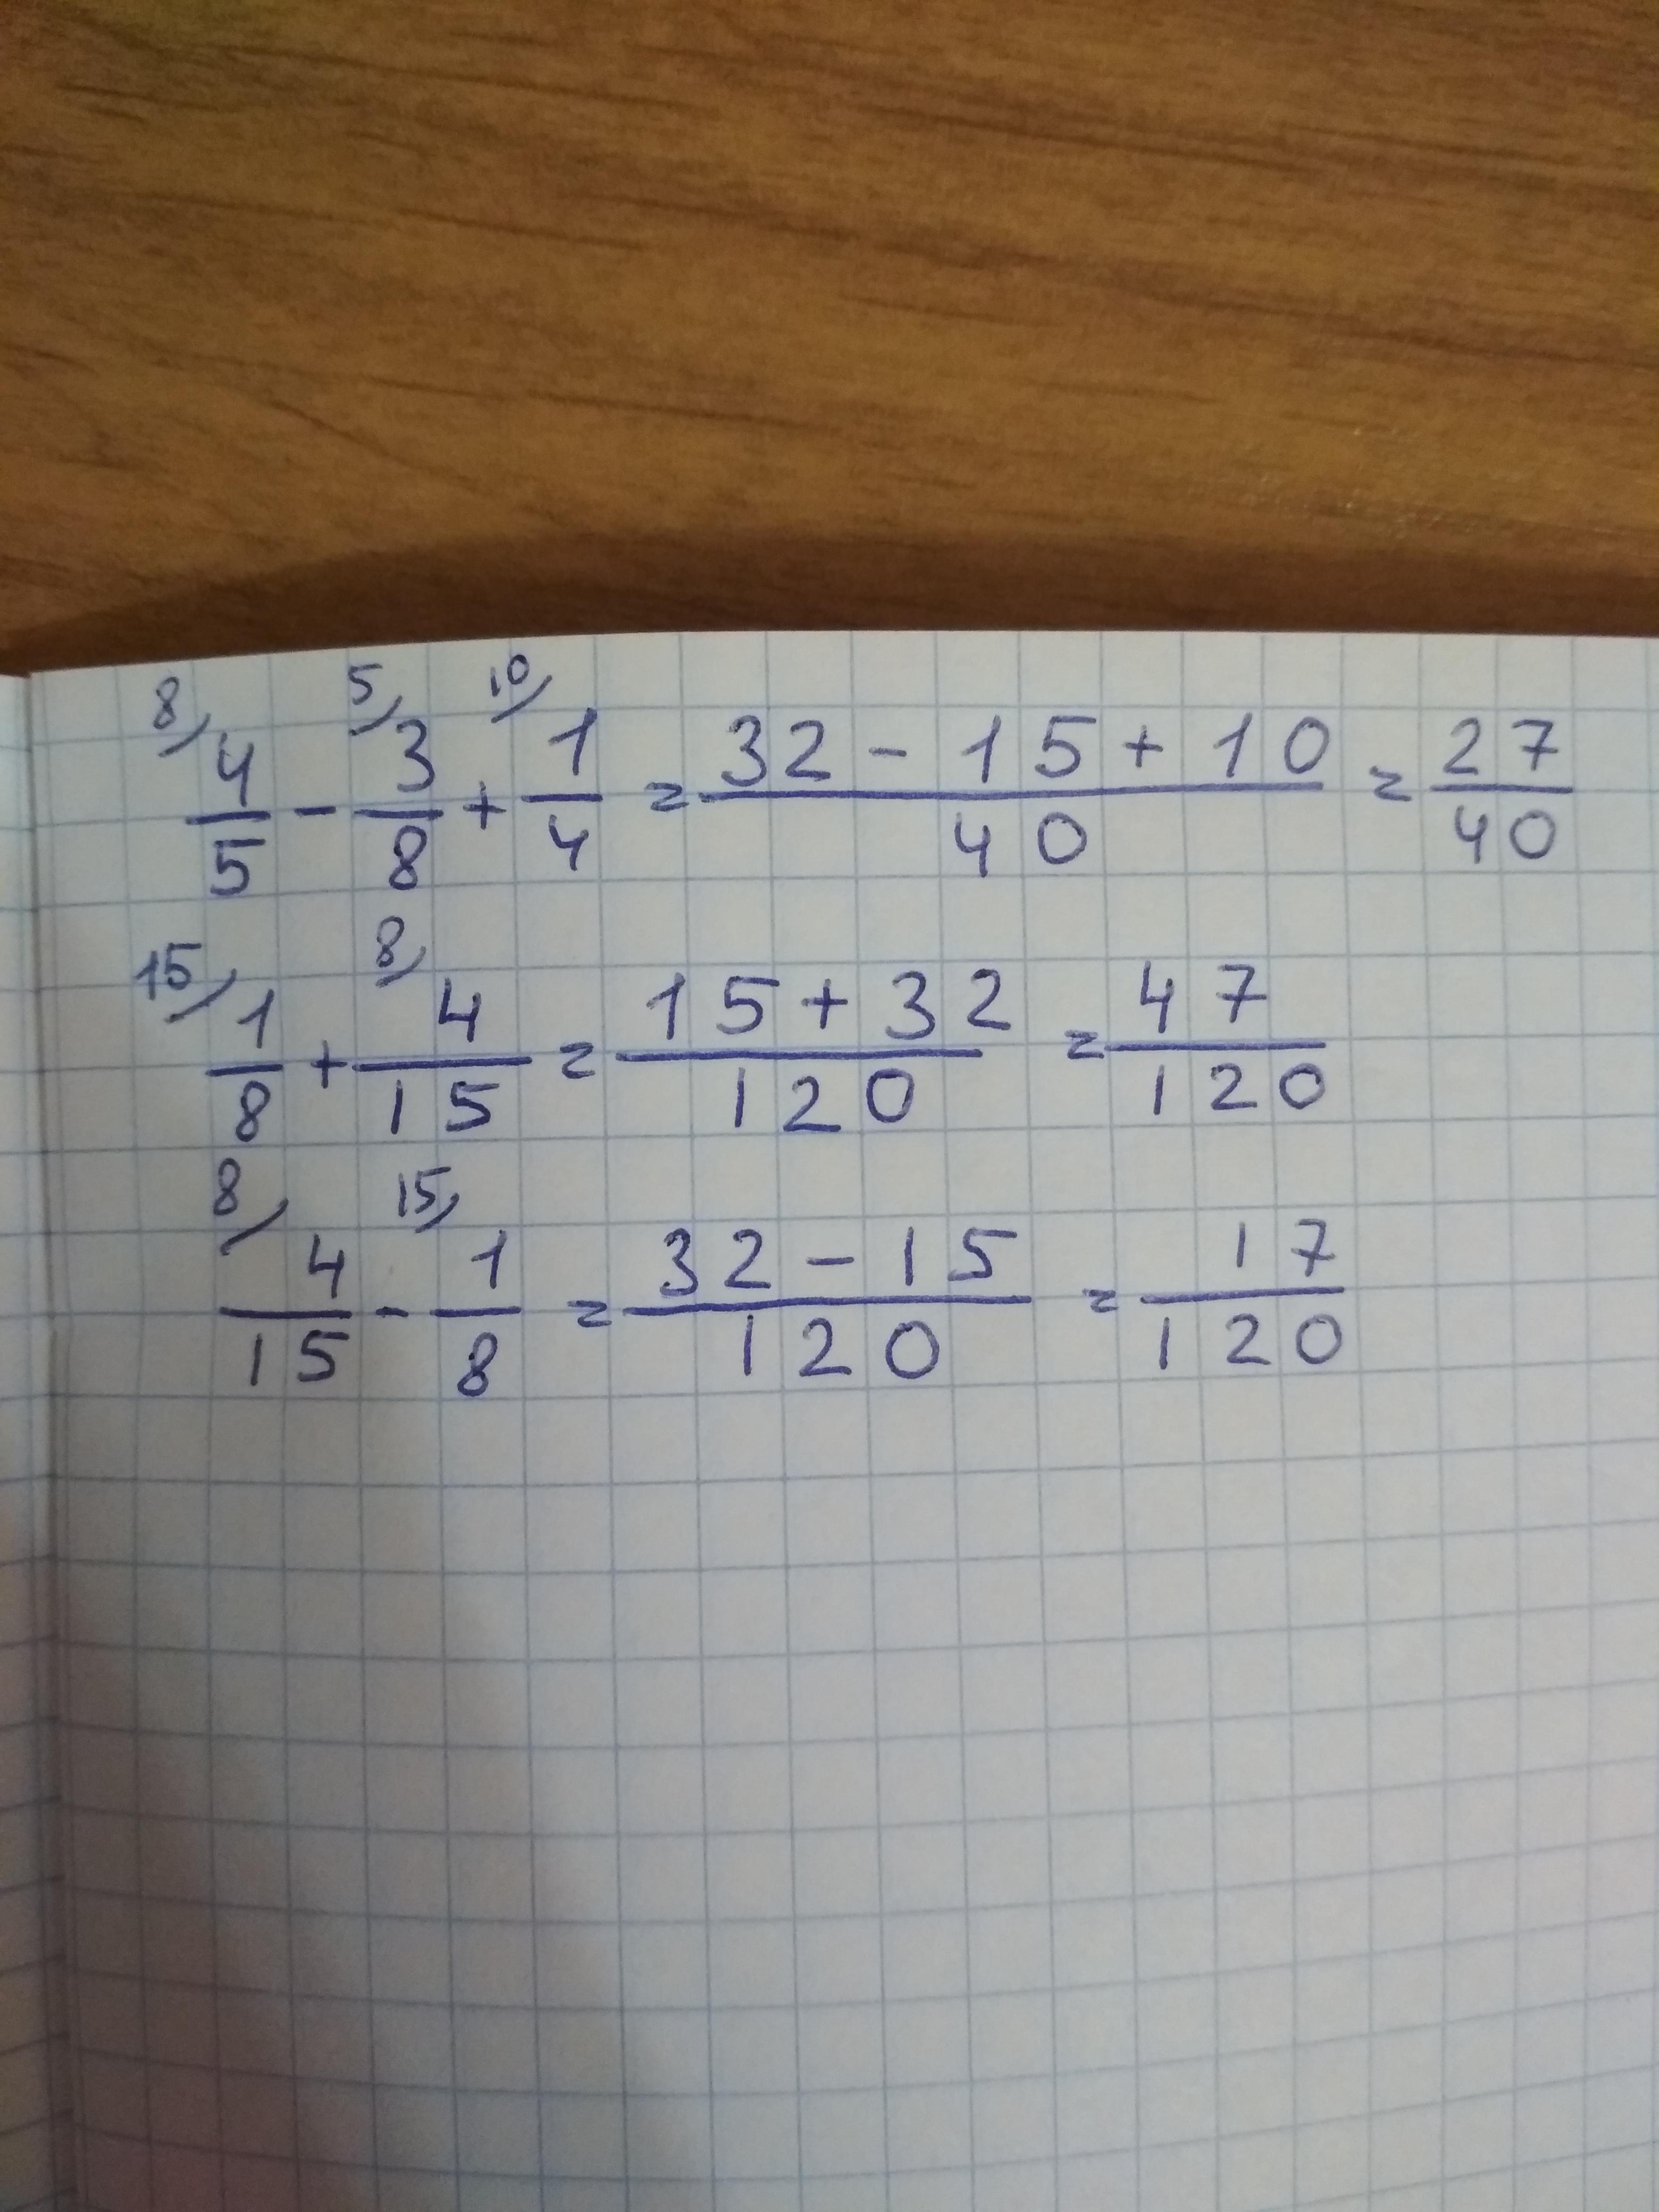 8/ 4/5 - 5/ 3/8 + 10/ 1/4 = (32 - 15 + 10)/40 = 27/40
15/ 1/8 + 8/ 4/15 = (15 + 32)/120 = 47/120
8/ 4/15 - 15/ 1/8 = (32 - 15)/120 = 17/120